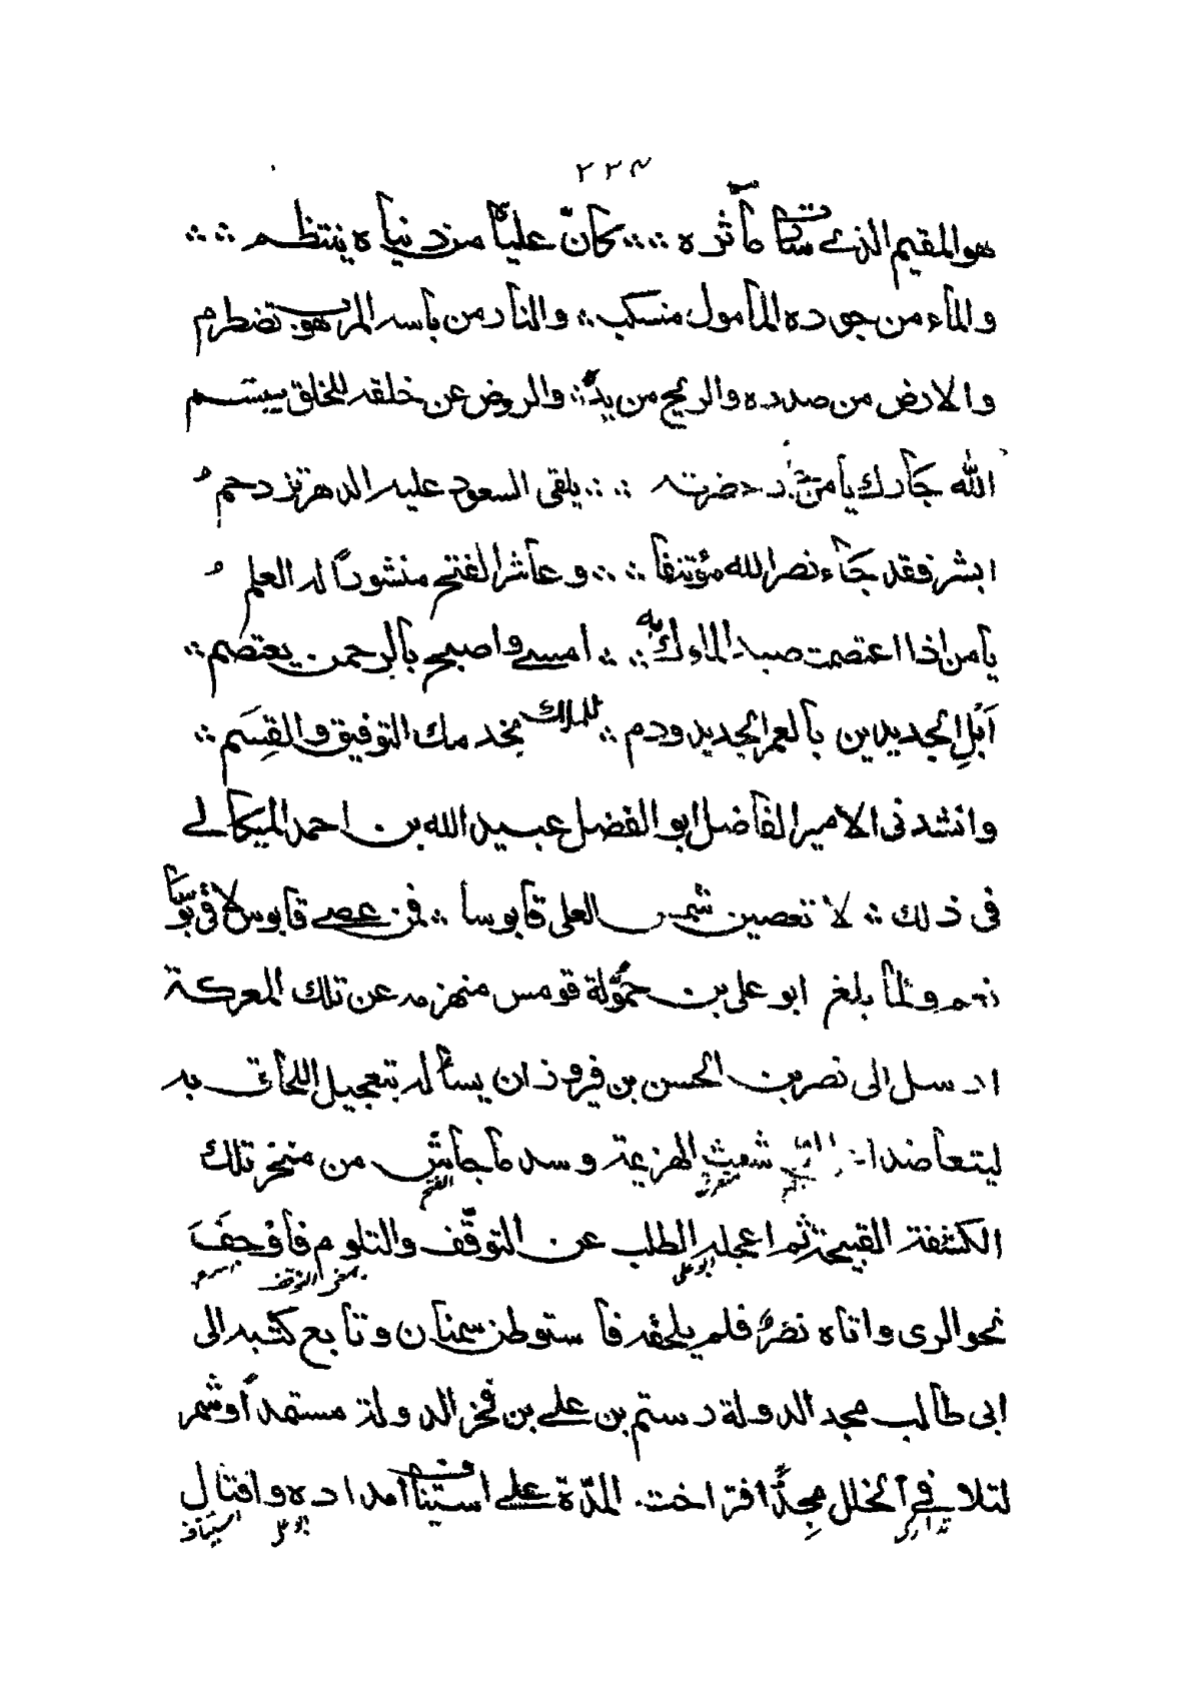 ٢٣٤
هو المقيم الذي سارت مآثره ∴ كأنّ عليا من دنياه ينتظم ∴
والماء من جوده المأمول منسكب ∴ والنار من بأسه المرهوب تضطرم
والارض من صدره والريح من يده ∴ والروض عن خلقه للخلق يبتسم
الله جارك يا من جار حضرته ∴ يلقى السعود عليه الدهر تزدحمُ
ابشر فقد جاء نصر الله مؤتنفا ∴ وعاشر الفتح منشورًا له العلمُ
يا من اذا اعتصمت صيد الملوك به ∴ امسى واصبح بالرحمن يعتصم ∴
اَبْلِ الجديدين بالعمر الجديد ودم ∴ للملك يخدمك التوفيق والقِسَم ∴
وانشدنى الامير الفاضل ابو الفضل عبيد الله بن احمد الميكالى
فى ذلك ∴ لا تعصين شمس العلى قابوسا ∴ فمن عصى قابوس لاقى بؤسا
نعم ولمّا بلغ ابو على بن حمّولة قومس منهزمه عن تلك المعركة
ارسل الى نصر بن الحسن بن فيروزان يسأله بتعجيل اللحاق به
ليتعاضدا شعيث الهزيمة وسد ما جاش من منخر تلك
الكشفة القبيحة ثم اعجله الطلب عن التوقّف والتلوم فأوْجفَ
ابو على التوقف
نحو الرى واتاه نصرٌ فلم يلحقه فاستوطن سمنان وتابع كتبه الى
ابى طالب مجد الدولة رستم بن على بن فخر الدولة مستمدًا وشمر
لتلافى الخلل مجِدًّا فتراخت المدّة على استيناف امداده واقتبال
تدارك ابو على استيناف